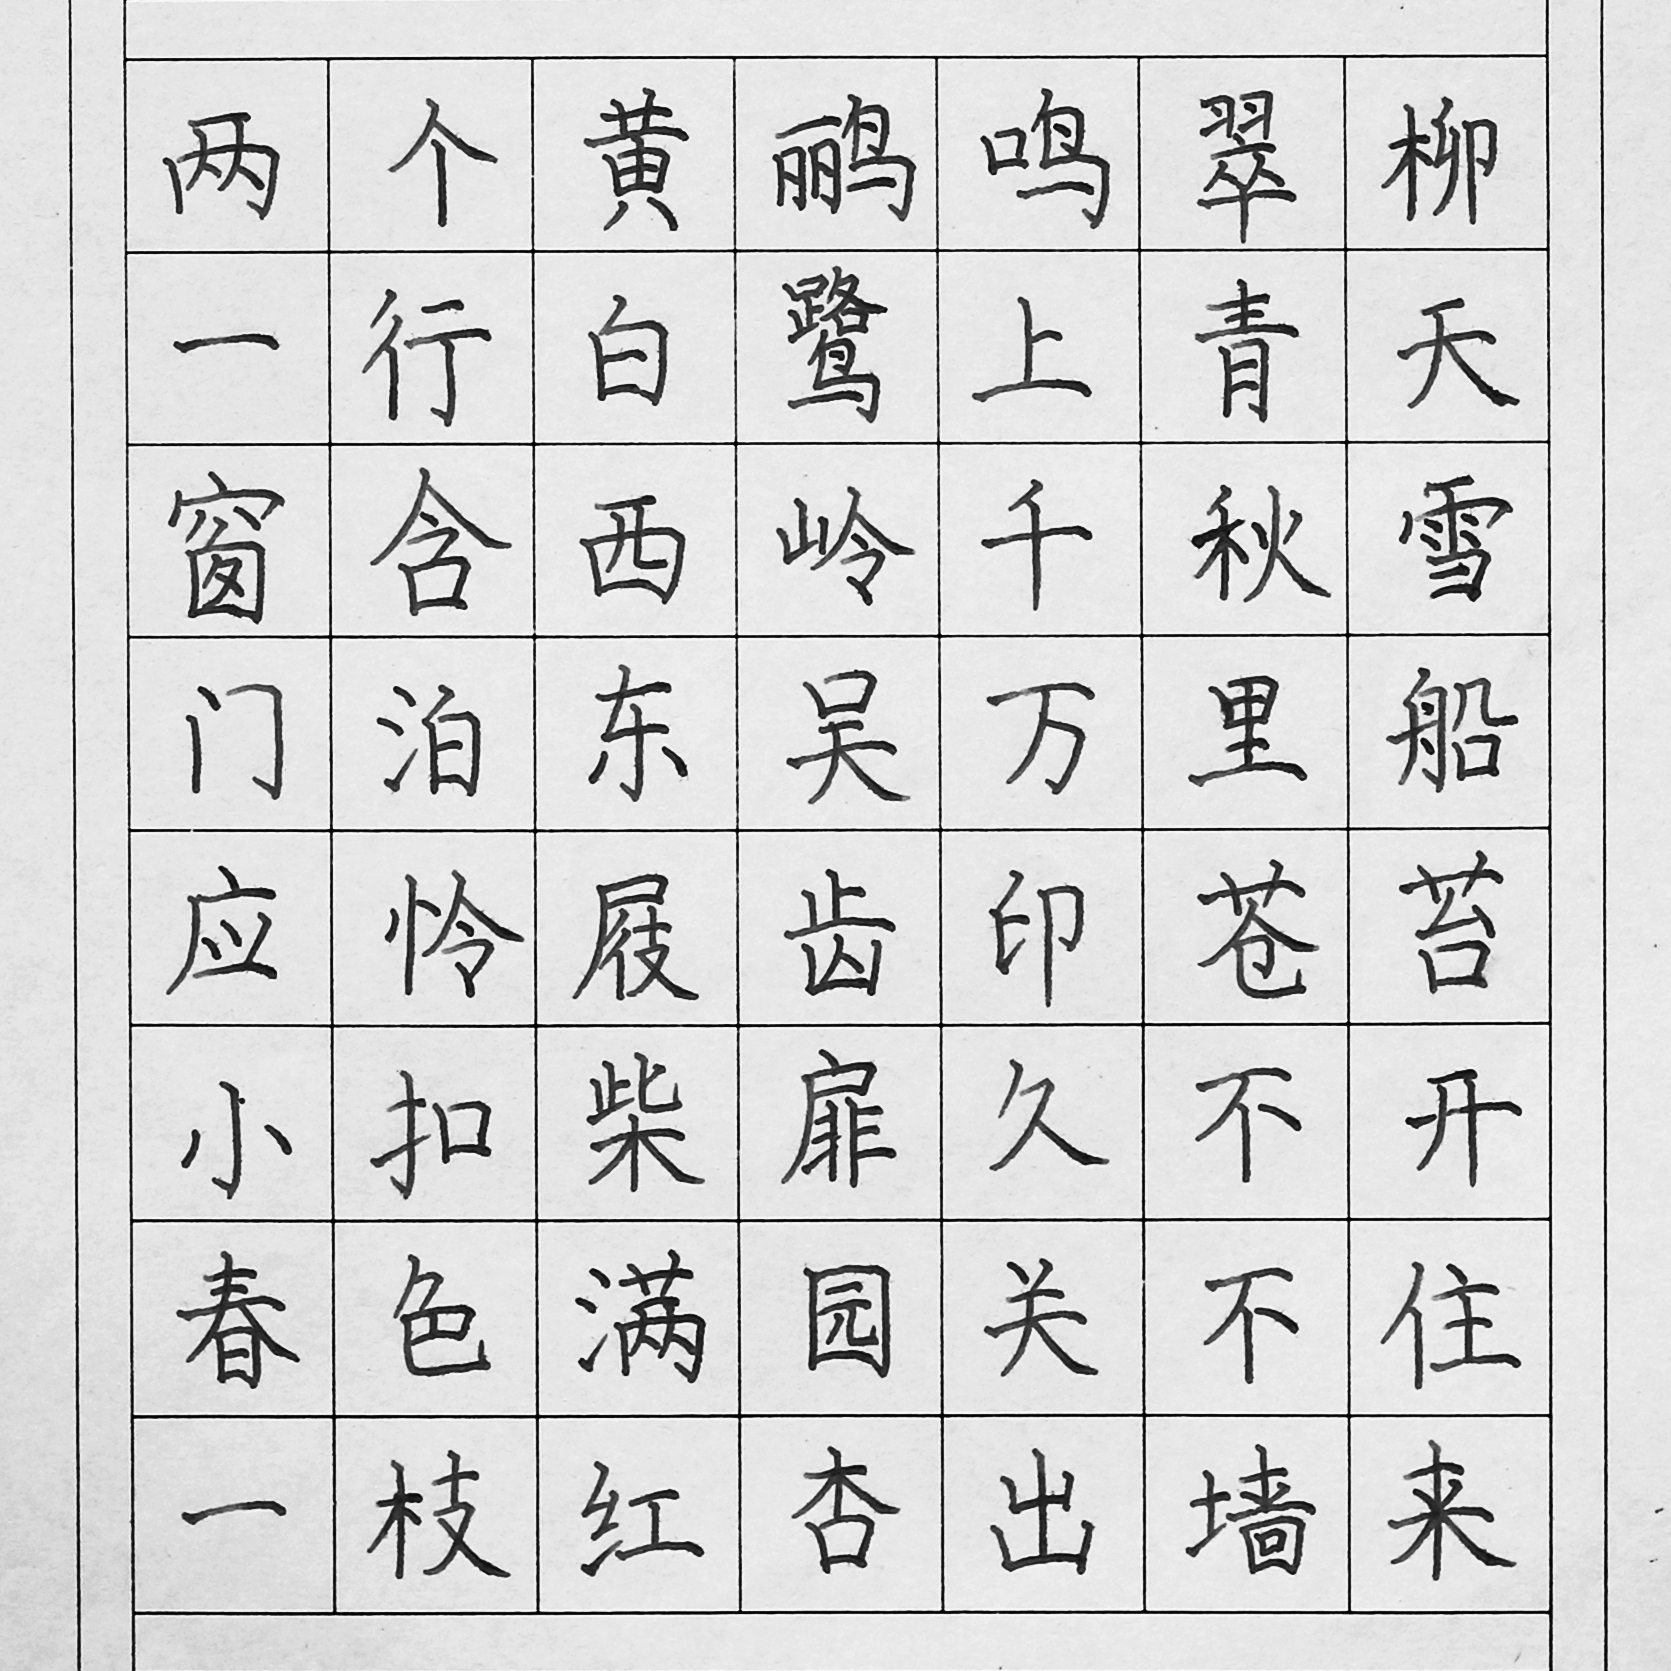 两个黄鹂鸣翠柳
一行白鹭上青天
窗含西岭千秋雪
门泊东吴万里船
应怜屐齿印苍苔
小扣柴扉久不开
春色满园关不住
一枝红杏出墙来